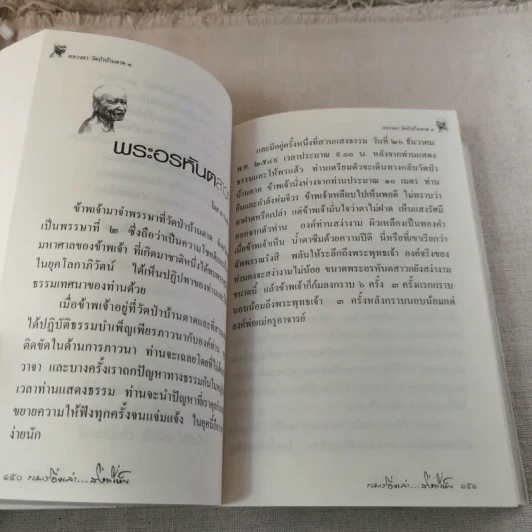 หลวงตา วัดป่าบ้านตาด ๑
พระอรหันต
ข้าพเจ้ามาจำพรรษาที่วัดป่าบ้านตาด
เป็นพรรษาที่ ๒ ซึ่งถือว่าเป็นความโชคดี
มหาศาลของข้าพเจ้า ที่เกิดมาชาตินี้ได้พบ
ในยุคโลกาภิวัตน์ ได้เห็นปฏิปทาของท่าน
ธรรมเทศนาของท่านด้วย
เมื่อข้าพเจ้าอยู่ที่วัดป่าบ้านตาดและที่สวน
ได้ปฏิบัติธรรมบำเพ็ญเพียรภาวนากับองค์ท่าน
ติดขัดในด้านการภาวนา ท่านจะเฉลยโดยที่ไม่
วาจา และบางครั้งเราถกปัญหาทางธรรมกันใน
เวลาท่านแสดงธรรม ท่านจะนำปัญหาที่เราคุย
ขยายความให้ฟังทุกครั้งจนแจ่มแจ้ง ในยุคนี้
ง่ายนัก
๑๕๐ รวมเรื่องเล่า...
หลวงตา วัดป่าบ้านตาด ๑
และมีอยู่ครั้งหนึ่งที่สวนแสงธรรม วันที่ ๒๖ ธันวาคม
พ.ศ. ๒๕๔๙ เวลาประมาณ ๙.๐๐ น. หลังจากท่านแสดง
ธรรมและให้พรแล้ว ท่านเตรียมตัวจะเดินทางกลับวัดป่า
บ้านตาด ข้าพเจ้านั่งห่างจากท่านประมาณ ๑๐ เมตร ท่าน
ยืนและกำลังห่มจีวร ข้าพเจ้าเหลือบไปเห็นพอดี ไม่ทราบว่า
ตาฝาดหรือเปล่า แต่ข้าพเจ้ามั่นใจว่าตาไม่ฝาด เห็นแสงรัศมี
ออกจากลำตัวท่าน องค์ท่านสง่างาม ผิวเหลืองเป็นทองคำ
เมื่อข้าพเจ้าเห็น น้ำตาซึมด้วยความปีติ นี่หรือที่เขาเรียกว่า
ฉัพพรรณรังสี พลันให้ระลึกถึงพระพุทธเจ้า องค์จริงของ
ท่านคงจะสง่างามไม่น้อย ขนาดพระอรหันตสาวกยังสง่างาม
ขนาดนี้ แล้วข้าพเจ้าก็ก้มลงกราบ ๖ ครั้ง ๓ ครั้งแรกกราบ
นอบน้อมถึงพระพุทธเจ้า ๓ ครั้งหลังกราบนอบน้อมแด่
องค์พ่อแม่ครูอาจารย์
รวมเรื่องเล่า... ๑๕๑